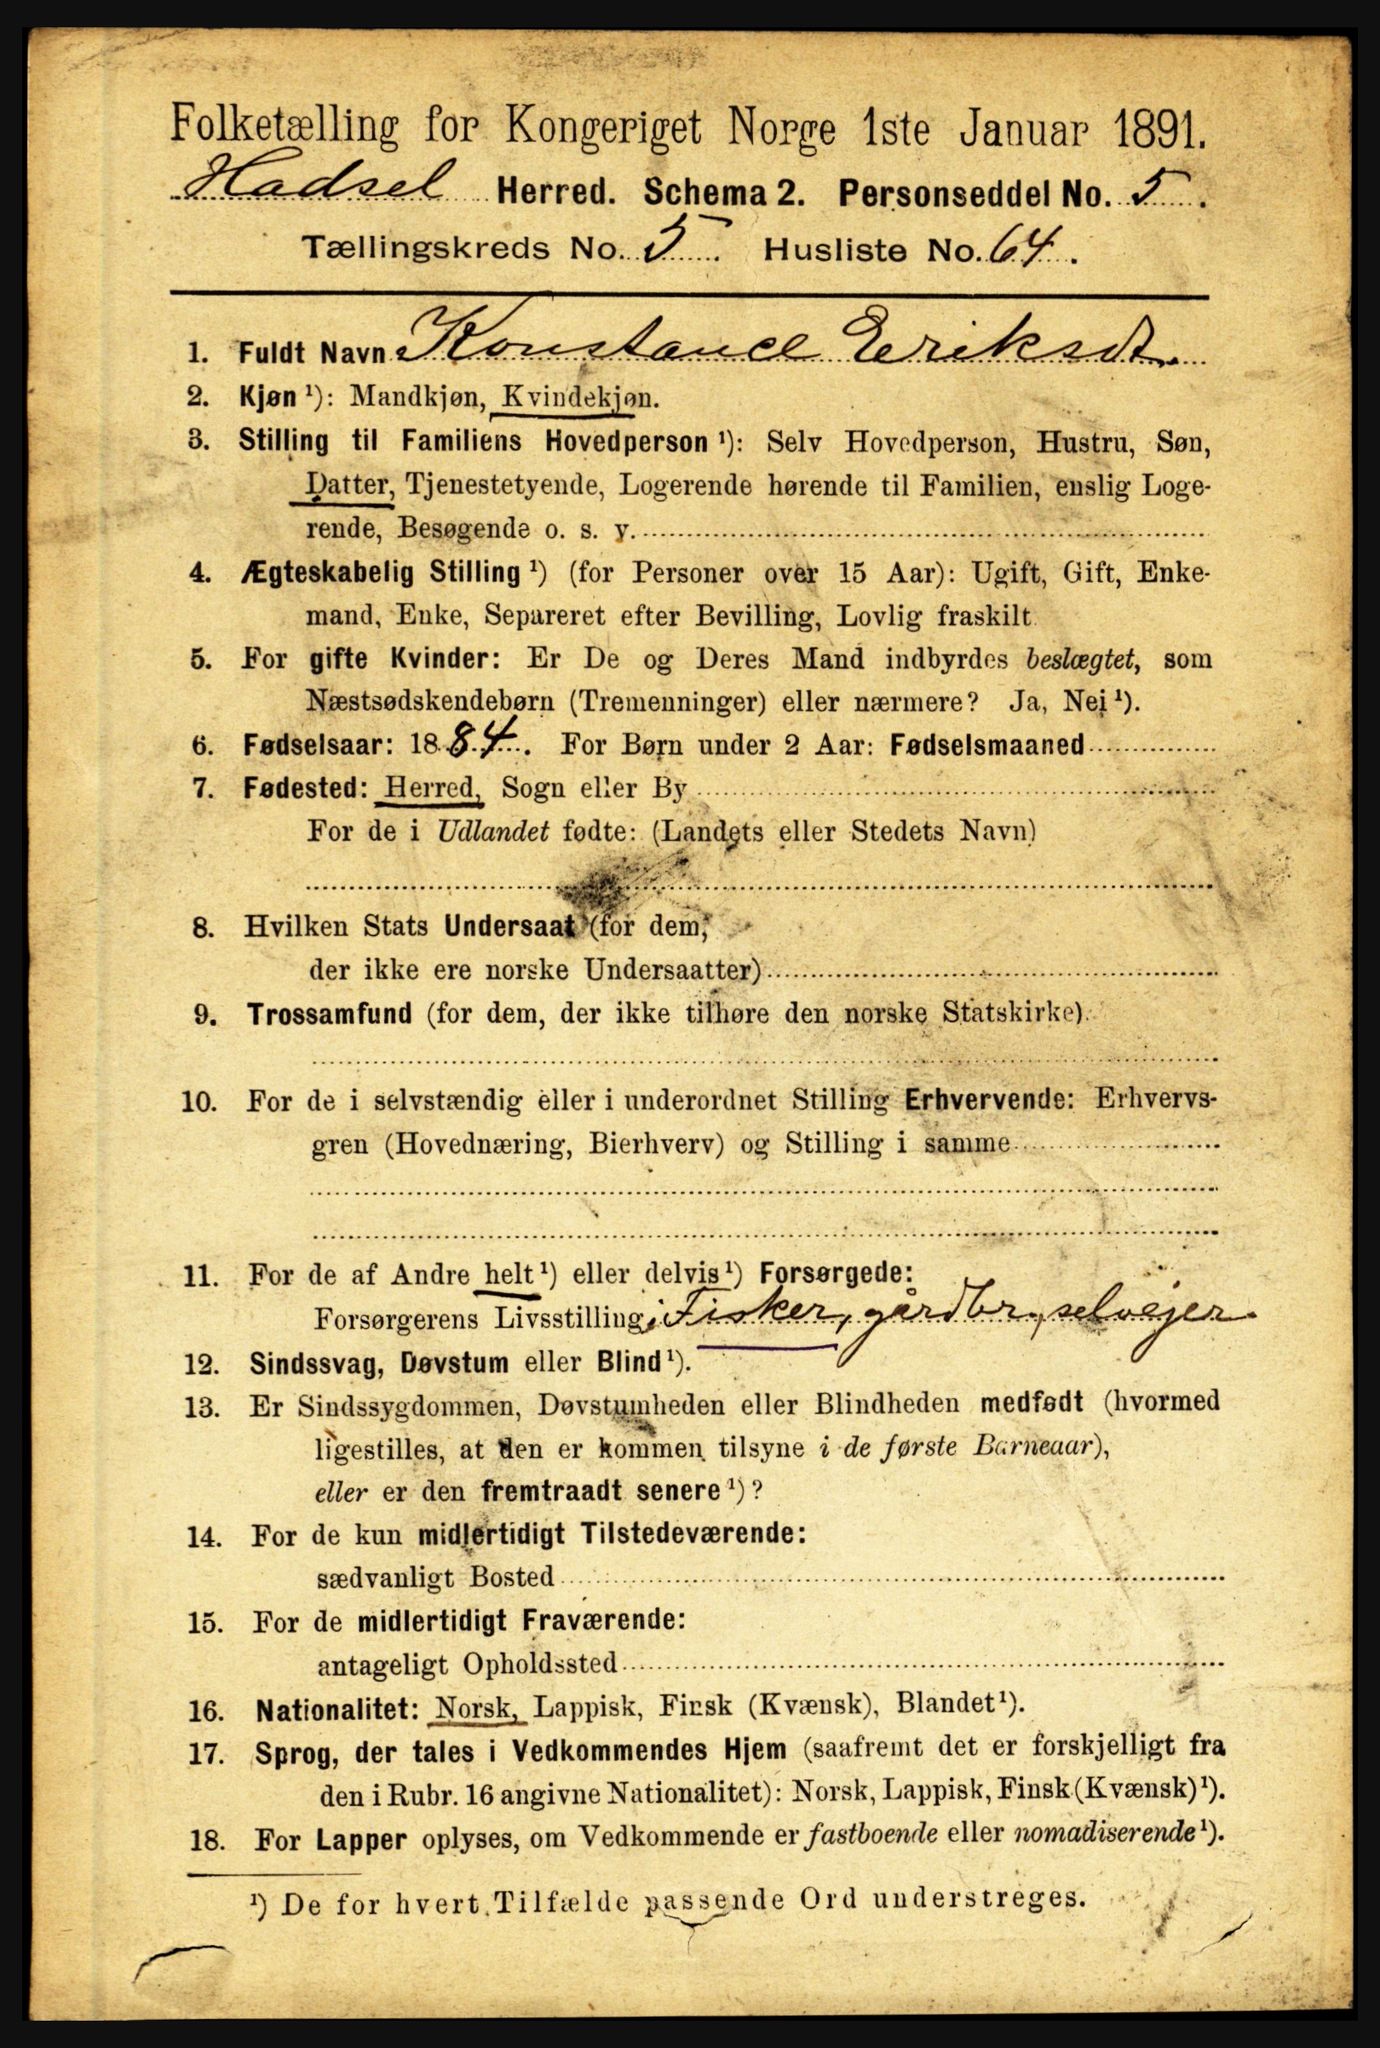 Folketælling for Kongeriget Norge 1ste Januar 1891.
Hadsel Herred. Schema 2. Personseddel No. 5.
Tællingskreds No. 5. Husliste No. 64.
1. Fuldt Navn Konstance Eriksdt.
2. Kjøn ¹): Mandkjøn, Kvindekjøn.
3. Stilling til Familiens Hovedperson ¹): Selv Hovedperson, Hustru, Søn,
Datter, Tjenestetyende, Logerende hørende til Familien, enslig Loge-
rende, Besøgende o. s. v.
4. Ægteskabelig Stilling ¹) (for Personer over 15 Aar): Ugift, Gift, Enke-
mand, Enke, Separeret efter Bevilling, Lovlig fraskilt.
5. For gifte Kvinder: Er De og Deres Mand indbyrdes beslægtet, som
Næstsødskendebørn (Tremenninger) eller nærmere? Ja, Nei ¹).
6. Fødselsaar: 1884. For Børn under 2 Aar: Fødselsmaaned
7. Fødested: Herred, Sogn eller By
For de i Udlandet fødte: (Landets eller Stedets Navn)
8. Hvilken Stats Undersaat (for dem,
der ikke ere norske Undersaatter)
9. Trossamfund (for dem, der ikke tilhøre den norske Statskirke).
10. For de i selvstændig eller i underordnet Stilling Erhvervende: Erhvervs-
gren (Hovednæring, Bierhverv) og Stilling i samme
11. For de af Andre helt ¹) eller delvis ¹) Forsørgede:
Forsørgerens Livsstilling; Fisker, gårdbr, selvejer
12. Sindssvag, Døvstum eller Blind ¹).
13. Er Sindssygdommen, Døvstumheden eller Blindheden medfødt (hvormed
ligestilles, at den er kommen tilsyne i de første Barneaar),
eller er den fremtraadt senere ¹)?
14. For de kun midlertidigt Tilstedeværende:
sædvanligt Bosted
15. For de midlertidigt Fraværende:
antageligt Opholdssted
16. Nationalitet: Norsk, Lappisk, Finsk (Kvænsk), Blandet ¹).
17. Sprog, der tales i Vedkommendes Hjem (saafremt det er forskjelligt fra
den i Rubr. 16 angivne Nationalitet): Norsk, Lappisk, Finsk (Kvænsk) ¹).
18. For Lapper oplyses, om Vedkommende er fastboende eller nomadiserende ¹).
¹) De for hvert Tilfælde passende Ord understreges.